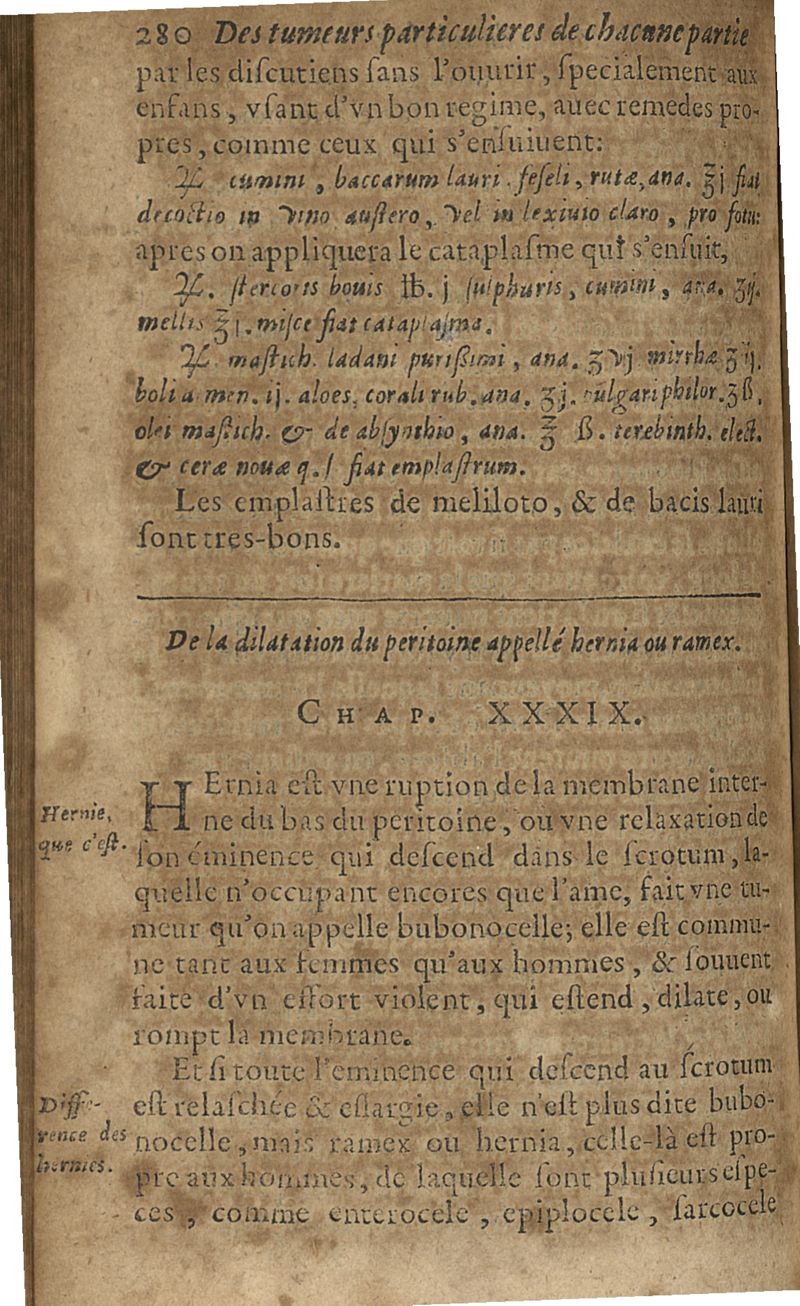 280 Des tumeurs particulieres de chacune partie
par les diſcutiens ſans l'ouurir, ſpecialement aux
enfans, vſant d'vn bon regime, auec remedes pro-
pres, comme ceux qui s'enſuiuent:
♃ cumini, baccarum lauri. ſeſeli, rutæ, ana. ℥j fiat
decoctio in vino auſtero, vel in lexiuio claro, pro fotu:
apres on appliquera le cataplaſme qui s'enſuit,
♃. ſtercoris bouis ℔. j ſulphuris, cumini, ana. ʒij.
mellis ℥j. miſce fiat cataplaſma.
♃. maſtich. ladani puriſſimi, ana. ʒvj mirrhæ ʒij.
boli a men. ij. aloes, corali rub. ana. ʒj. philor. ʒß.
olei maſtich. & de abſynthio, ana. ℥ ß. terebinth. elect.
& ceræ nouæ q. ſ fiat emplaſtrum.
Les emplaſtres de meliloto, & de bacis lauri
ſont tres-bons.
De la dilatation du peritoine appellé hernia ou ramex.
CHAP. XXXIX.
HErnia eſt vne ruption de la membrane inter-
Hernie, ne du bas du peritoine, ou vne relaxation de
que c'eſt. ſon éminence qui deſcend dans le ſcrotum, la-
quelle n'occupant encores que l'ame, fait vne tu-
meur qu'on appelle bubonocelle; elle eſt commu-
ne tant aux femmes qu'aux hommes, & ſouuent
faite d'vn effort violent, qui eſtend, dilate, ou
rompt la membrane.
Et ſi toute l'eminence qui deſcend au ſcrotum
Diffe- eſt relaſchée & eſlargie, elle n'eſt plus dite bubo-
rence des nocelle, mais ramex ou hernia, celle-là eſt pro-
hernies. pre aux hommes, de laquelle ſont pluſieurs eſpe-
ces, comme enterocele, epiplocele, ſarcocele